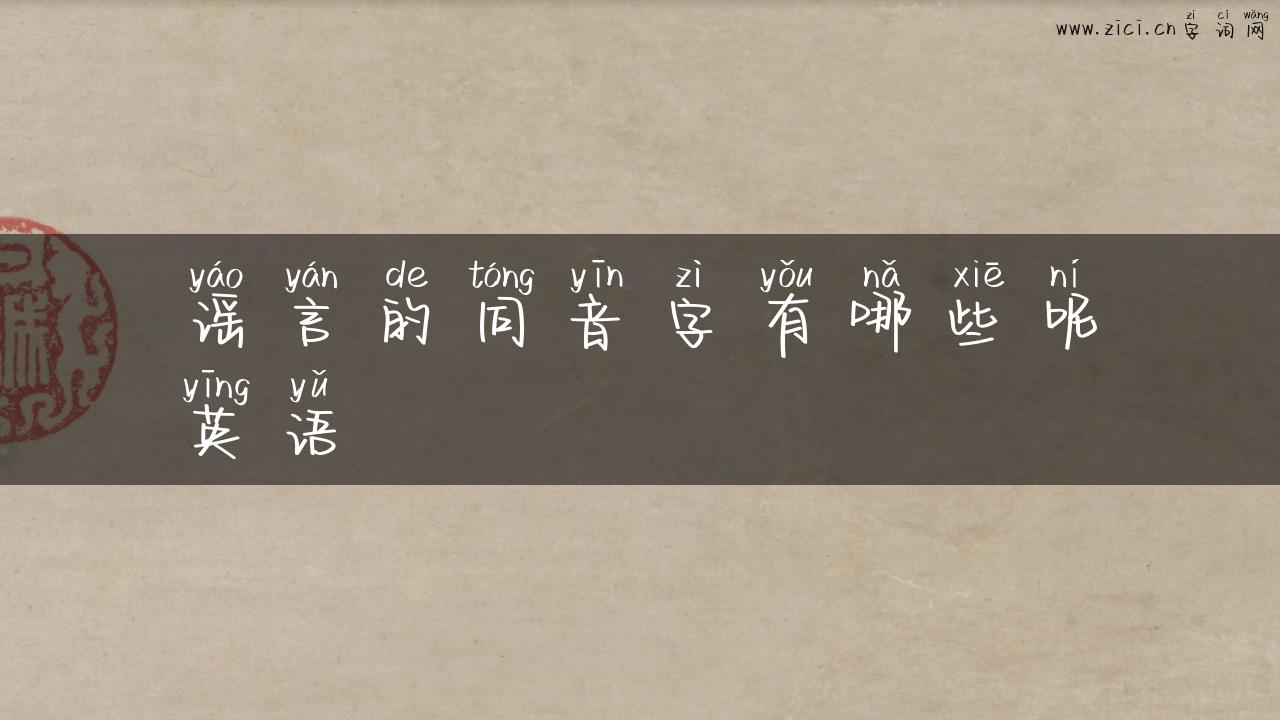 zì cí wǎng
www.zici.cn字词网
yáo yán de tóng yīn zì yǒu nǎ xiē ní
谣言的同音字有哪些呢
yīng yǔ
英语